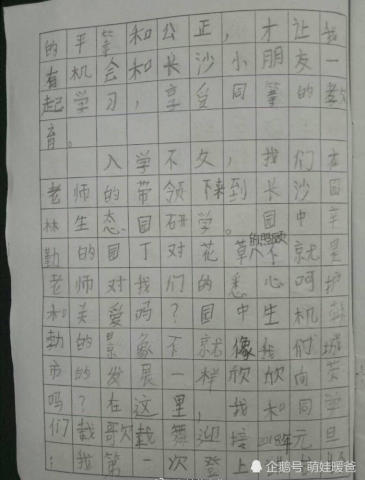 的平等和公正，才让我
有机会和长沙小朋友一
起学习，享受同等的教
育。
入学不久，我们在
老师的带领下来到长沙园
林生态园研学。园中辛
勤的园丁对花草的照顾不就是
老师对我们的悉心呵护
和关爱吗？园中生机勃
勃的景象不就像我们城
市的发展一样欣欣向荣
吗？在这里，我和同学
们载歌载舞迎接2018年元旦
；我第一次登上
企鹅号 萌娃暖爸